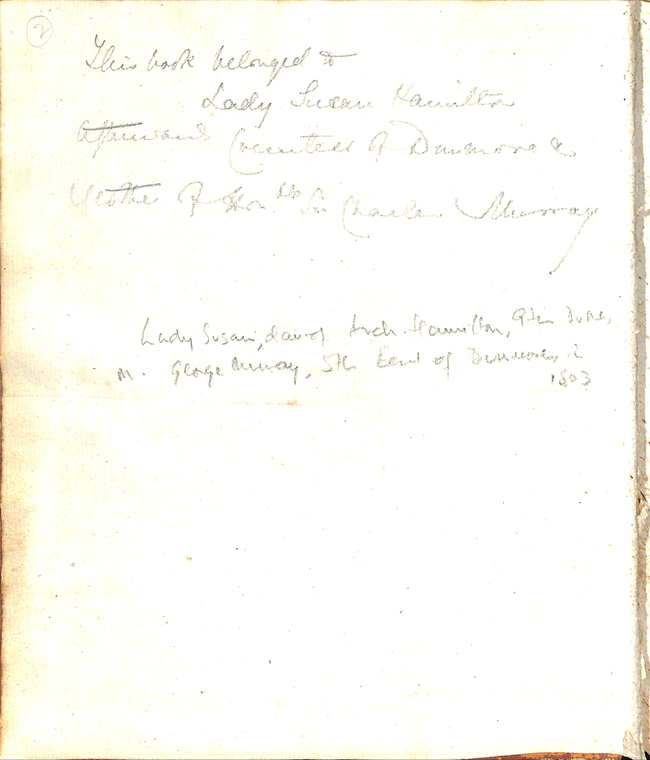 2
This book belonged to
Lady Susan Hamilton
afterwards Countess of Dunmore &
Mother of Hon. ble Sir Charles Murray
Lady Susan, dau of Arch. Hamilton, 9th Duke,
m. George Murray, 5th Earl of Dunmore, in
1803